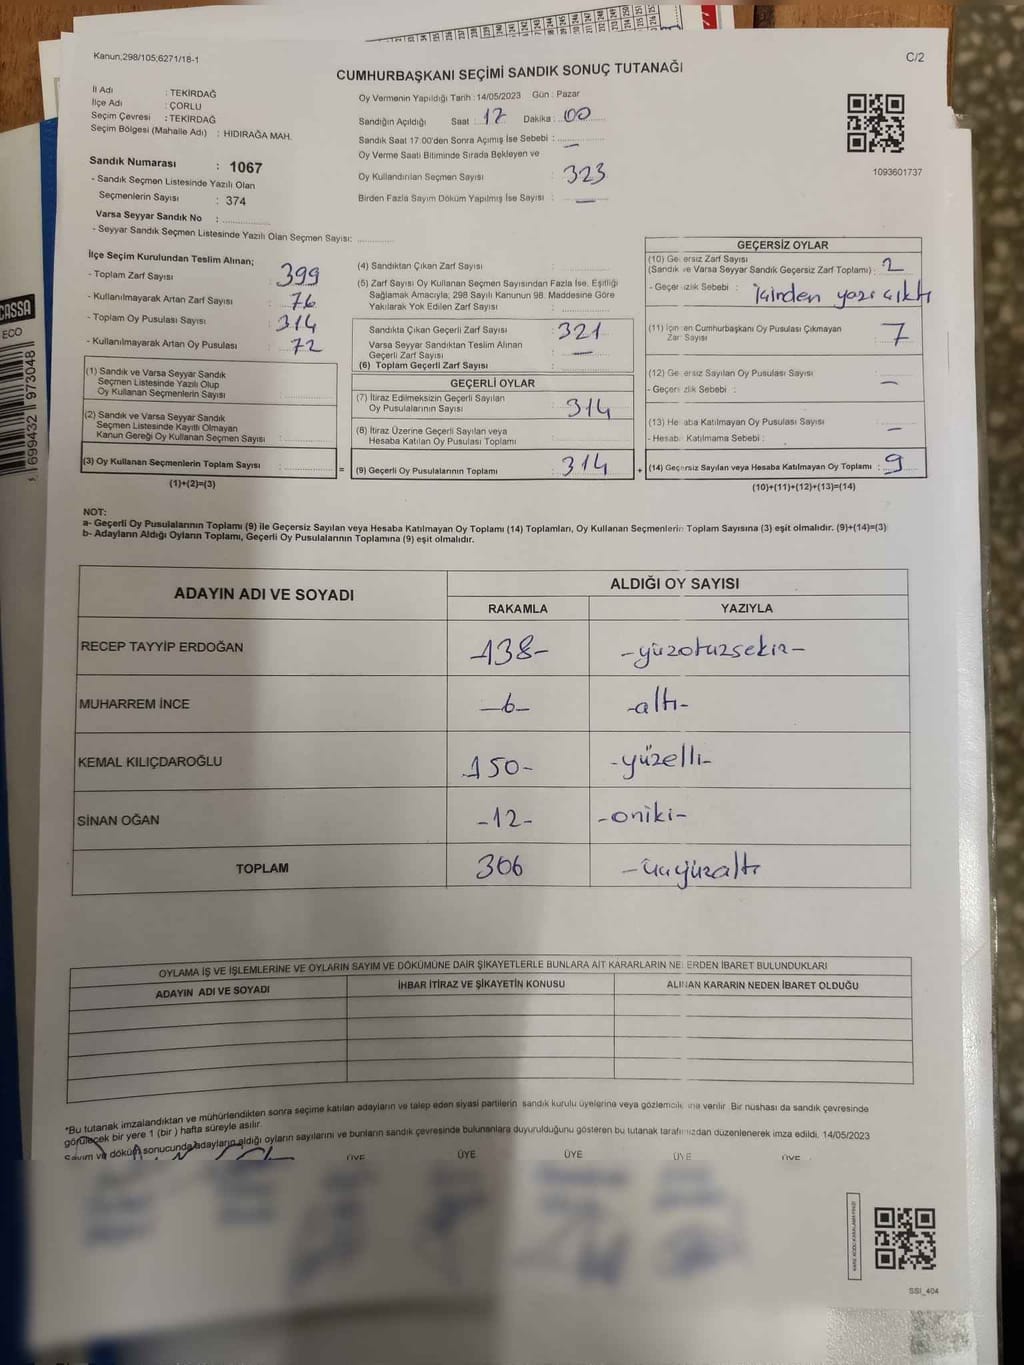 Kanun,298/105;6271/18-1
C/2
CUMHURBAŞKANI SEÇİMİ SANDIK SONUÇ TUTANAĞI
İl Adı : TEKİRDAĞ
İlçe Adı : ÇORLU
Seçim Çevresi : TEKİRDAĞ
Seçim Bölgesi (Mahalle Adı) : HIDIRAĞA MAH.
Sandık Numarası : 1067
- Sandık Seçmen Listesinde Yazılı Olan
Seçmenlerin Sayısı : 374
Varsa Seyyar Sandık No :
- Seyyar Sandık Seçmen Listesinde Yazılı Olan Seçmen Sayısı:
Oy Vermenin Yapıldığı Tarih : 14/05/2023 Gün : Pazar
Sandığın Açıldığı Saat : 17 Dakika : 00
Sandık Saat 17:00'den Sonra Açımış İse Sebebi : —
Oy Verme Saati Bitiminde Sırada Bekleyen ve
Oy Kullandırılan Seçmen Sayısı : 323
Birden Fazla Sayım Döküm Yapılmış İse Sayısı : —
1093601737
İlçe Seçim Kurulundan Teslim Alınan;
- Toplam Zarf Sayısı : 399
- Kullanılmayarak Artan Zarf Sayısı : 76
- Toplam Oy Pusulası Sayısı : 314
- Kullanılmayarak Artan Oy Pusulası : 72
(1) Sandık ve Varsa Seyyar Sandık
Seçmen Listesinde Yazılı Olup
Oy Kullanan Seçmenlerin Sayısı :
(2) Sandık ve Varsa Seyyar Sandık
Seçmen Listesinde Kayıtlı Olmayan
Kanun Gereği Oy Kullanan Seçmen Sayısı :
(3) Oy Kullanan Seçmenlerin Toplam Sayısı :
(1)+(2)=(3)
(4) Sandıktan Çıkan Zarf Sayısı :
(5) Zarf Sayısı Oy Kullanan Seçmen Sayısından Fazla İse, Eşitliği
Sağlamak Amacıyla; 298 Sayılı Kanunun 98. Maddesine Göre
Yakılarak Yok Edilen Zarf Sayısı :
Sandıkta Çıkan Geçerli Zarf Sayısı : 321
Varsa Seyyar Sandıktan Teslim Alınan
Geçerli Zarf Sayısı : —
(6) Toplam Geçerli Zarf Sayısı :
GEÇERLİ OYLAR
(7) İtiraz Edilmeksizin Geçerli Sayılan
Oy Pusulalarının Sayısı : 314
(8) İtiraz Üzerine Geçerli Sayılan veya
Hesaba Katılan Oy Pusulası Toplamı :
= (9) Geçerli Oy Pusulalarının Toplamı : 314 +
GEÇERSİZ OYLAR
(10) Geçersiz Zarf Sayısı
(Sandık ve Varsa Seyyar Sandık Geçersiz Zarf Toplamı) : 2
- Geçersizlik Sebebi : İçinden yazı çıktı
(11) İçinden Cumhurbaşkanı Oy Pusulası Çıkmayan
Zarf Sayısı : 7
(12) Geçersiz Sayılan Oy Pusulası Sayısı : —
- Geçersizlik Sebebi :
(13) Hesaba Katılmayan Oy Pusulası Sayısı : —
- Hesaba Katılmama Sebebi :
(14) Geçersiz Sayılan veya Hesaba Katılmayan Oy Toplamı : 9
(10)+(11)+(12)+(13)=(14)
NOT:
a- Geçerli Oy Pusulalarının Toplamı (9) ile Geçersiz Sayılan veya Hesaba Katılmayan Oy Toplamı (14) Toplamları, Oy Kullanan Seçmenlerin Toplam Sayısına (3) eşit olmalıdır. (9)+(14)=(3)
b- Adayların Aldığı Oyların Toplamı, Geçerli Oy Pusulalarının Toplamına (9) eşit olmalıdır.
ADAYIN ADI VE SOYADI
ALDIĞI OY SAYISI
RAKAMLA YAZIYLA
RECEP TAYYİP ERDOĞAN -138- -yüzotuzsekiz-
MUHARREM İNCE -6- -altı-
KEMAL KILIÇDAROĞLU 150- -yüzelli-
SİNAN OĞAN -12- -oniki-
TOPLAM 306 -üçyüzaltı
OYLAMA İŞ VE İŞLEMLERİNE VE OYLARIN SAYIM VE DÖKÜMÜNE DAİR ŞİKAYETLERLE BUNLARA AİT KARARLARIN NELERDEN İBARET BULUNDUKLARI
ADAYIN ADI VE SOYADI İHBAR İTİRAZ VE ŞİKAYETİN KONUSU ALINAN KARARIN NEDEN İBARET OLDUĞU
*Bu tutanak imzalandıktan ve mühürlendikten sonra seçime katılan adayların ve talep eden siyasi partilerin sandık kurulu üyelerine veya gözlemcilerine verilir. Bir nüshası da sandık çevresinde
görülecek bir yere 1 (bir ) hafta süreyle asılır.
Sayım ve döküm sonucunda adayların aldığı oyların sayılarını ve bunların sandık çevresinde bulunanlara duyurulduğunu gösteren bu tutanak tarafımızdan düzenlenerek imza edildi. 14/05/2023
ÜYE ÜYE ÜYE ÜYE ÜYE
SSİ_404
CASSA
ECO
699432 973048